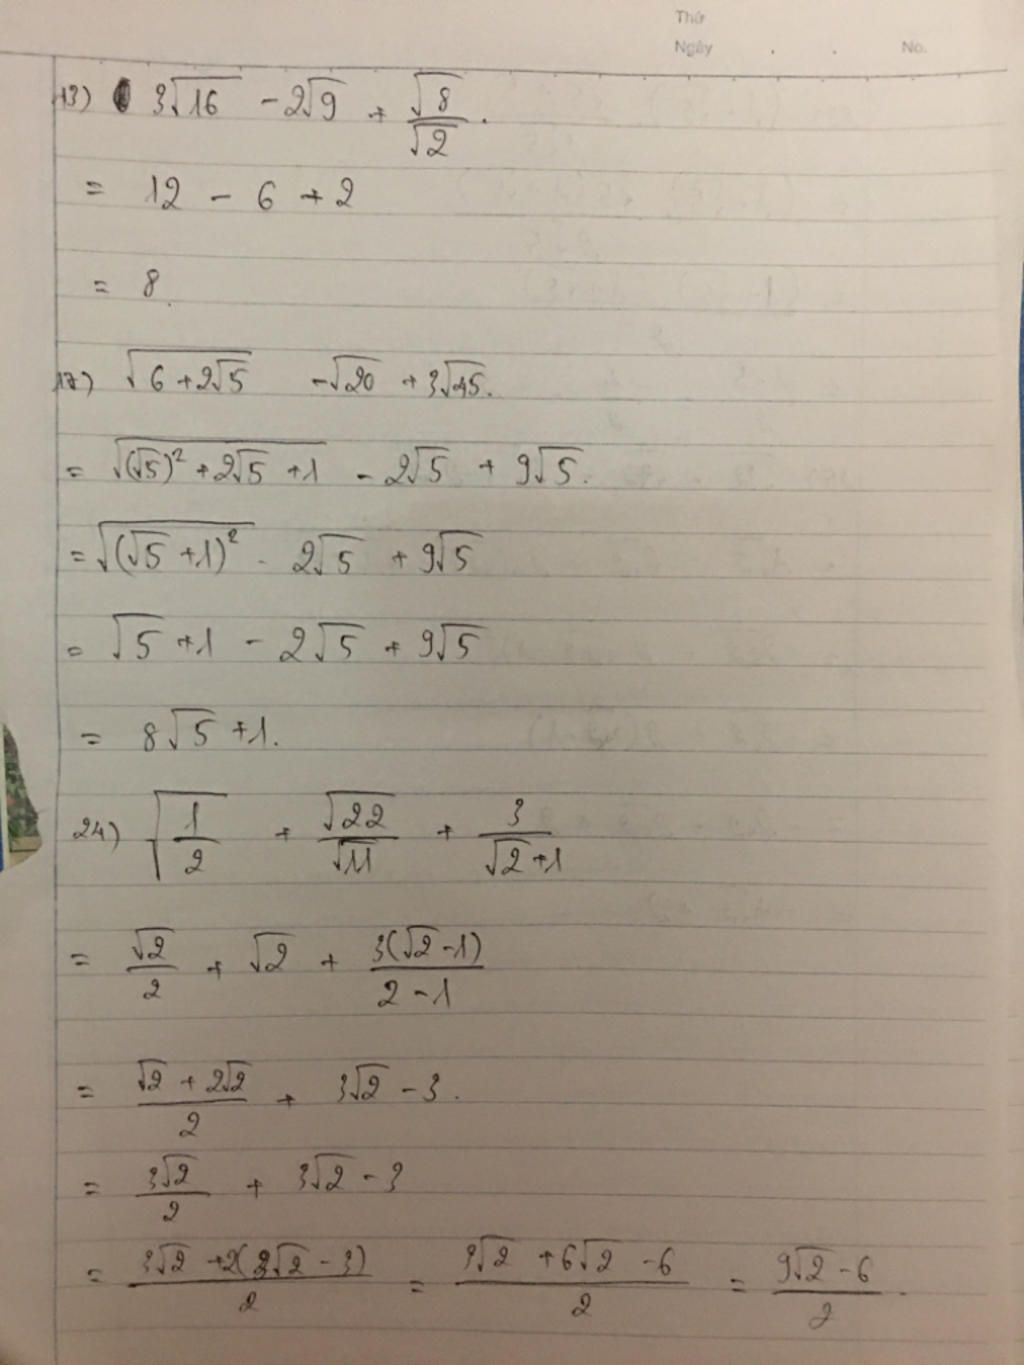 Thứ
Ngày . . No.
13) 3√16 - 2√9 + √8/√2.
= 12 - 6 + 2
= 8.
17) √(6 + 2√5) - √20 + 3√45.
= √((√5)² + 2√5 + 1) - 2√5 + 9√5.
= √((√5 + 1)²) - 2√5 + 9√5
= √5 + 1 - 2√5 + 9√5
= 8√5 + 1.
24) √(1/2) + √22/√11 + 3/(√2 + 1)
= √2/2 + √2 + 3(√2 - 1)/(2 - 1)
= (√2 + 2√2)/2 + 3√2 - 3.
= 3√2/2 + 3√2 - 3
= (3√2 + 2(3√2 - 3))/2 = (3√2 + 6√2 - 6)/2 = (9√2 - 6)/2.